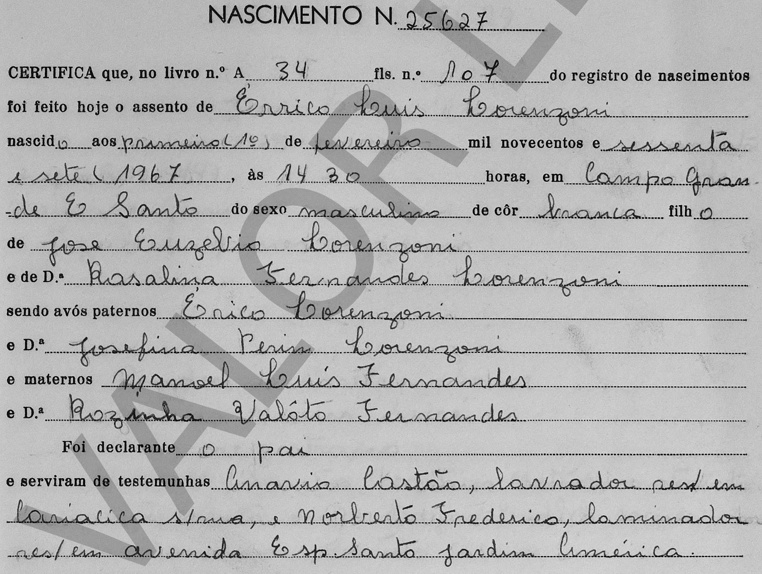 NASCIMENTO N. 25627
CERTIFICA que, no livro n.º A 34 fls. n.º 107 do registro de nascimentos
foi feito hoje o assento de Errico Luis Lorenzoni
nascido aos primeiro (1º) de fevereiro mil novecentos e sessenta
e sete (1967 , às 14 30 horas, em Campo Gran-
-de E Santo do sexo masculino de côr branca filho
de Jose Euzelio Lorenzoni
e de D.ª Rosalina Fernandes Lorenzoni
sendo avós paternos Erico Lorenzoni
e D.ª Josefina Perim Lorenzoni
e maternos Manoel Luis Fernandes
e D.ª Rozinha Valôto Fernandes
Foi declarante o pai
e serviram de testemunhas Castão, lavrador res/ em
Cariacica s/rua, e Norberto Frederico, laminador
res/ em avenida Esp. Santo Jardim América.
VALOR